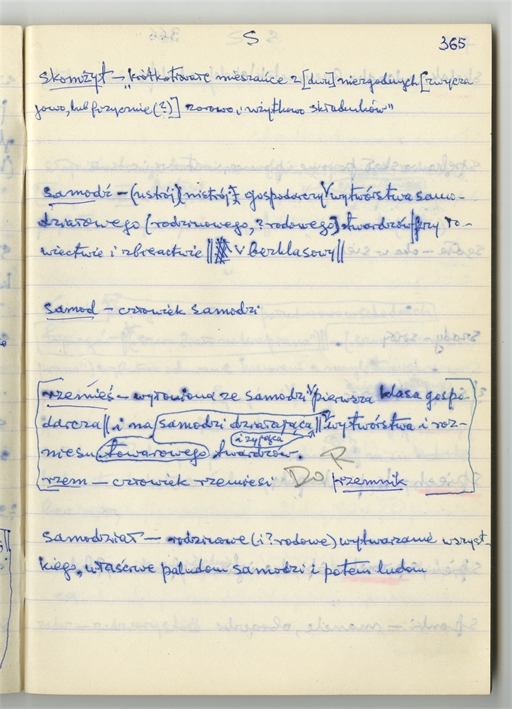 S
365
skomżył – "krótkotrwałe mieszańce z [dwu] niezgodnych [zwycza
jowo, lub fizycznie (?)] zarowo, użytkowo składników"
samodź – (ustrój) gospodarczy wytwórstwa samo-
działowego (rodzinowego, ? rodowego) twardzów przy ro-
wiectwie i zbieractwie || v bezklasowy ||
samod – człowiek samodzi
rzemieś – wyłoniona ze samodzi pierwsza klasa gospo-
darcza || i na samodzi działająca || wytwórstwa i roz-
i żyjąca
miesu towarowego twardzów.
rzem – człowiek rzemiesi DO R przemnik
samodział – rodzinowe (i ? rodowe) wytwarzanie wszyst-
kiego, właściwe paludom samodzi i potem ludom